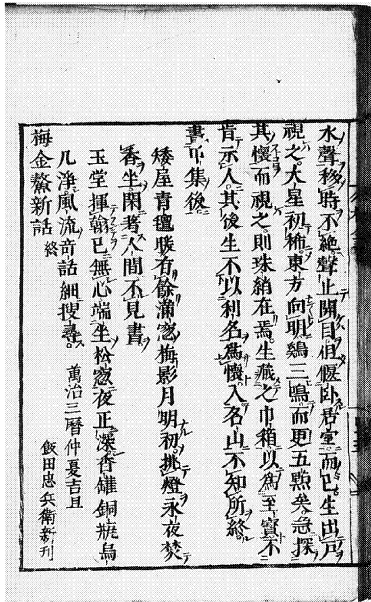 水聲移時不絶聲止開目但偃臥居室而已生出戶
視之大星初稀東方向明鷄三鳴而更五點矣急探
其懷而視之則珠綃在焉生藏之巾箱以爲至寳不
肯示人其後生不以利名爲懷入名山不知所終
書甲集後
矮屋青氊暖有餘滿窓梅影月明初挑燈永夜焚
香坐閑著人間不見書
玉堂揮翰已無心端坐松窓夜正深香罐銅瓶烏
几淨風流奇話細搜尋
萬治三曆仲夏吉旦
飯田忠兵衛新刊
梅金鰲新話 終